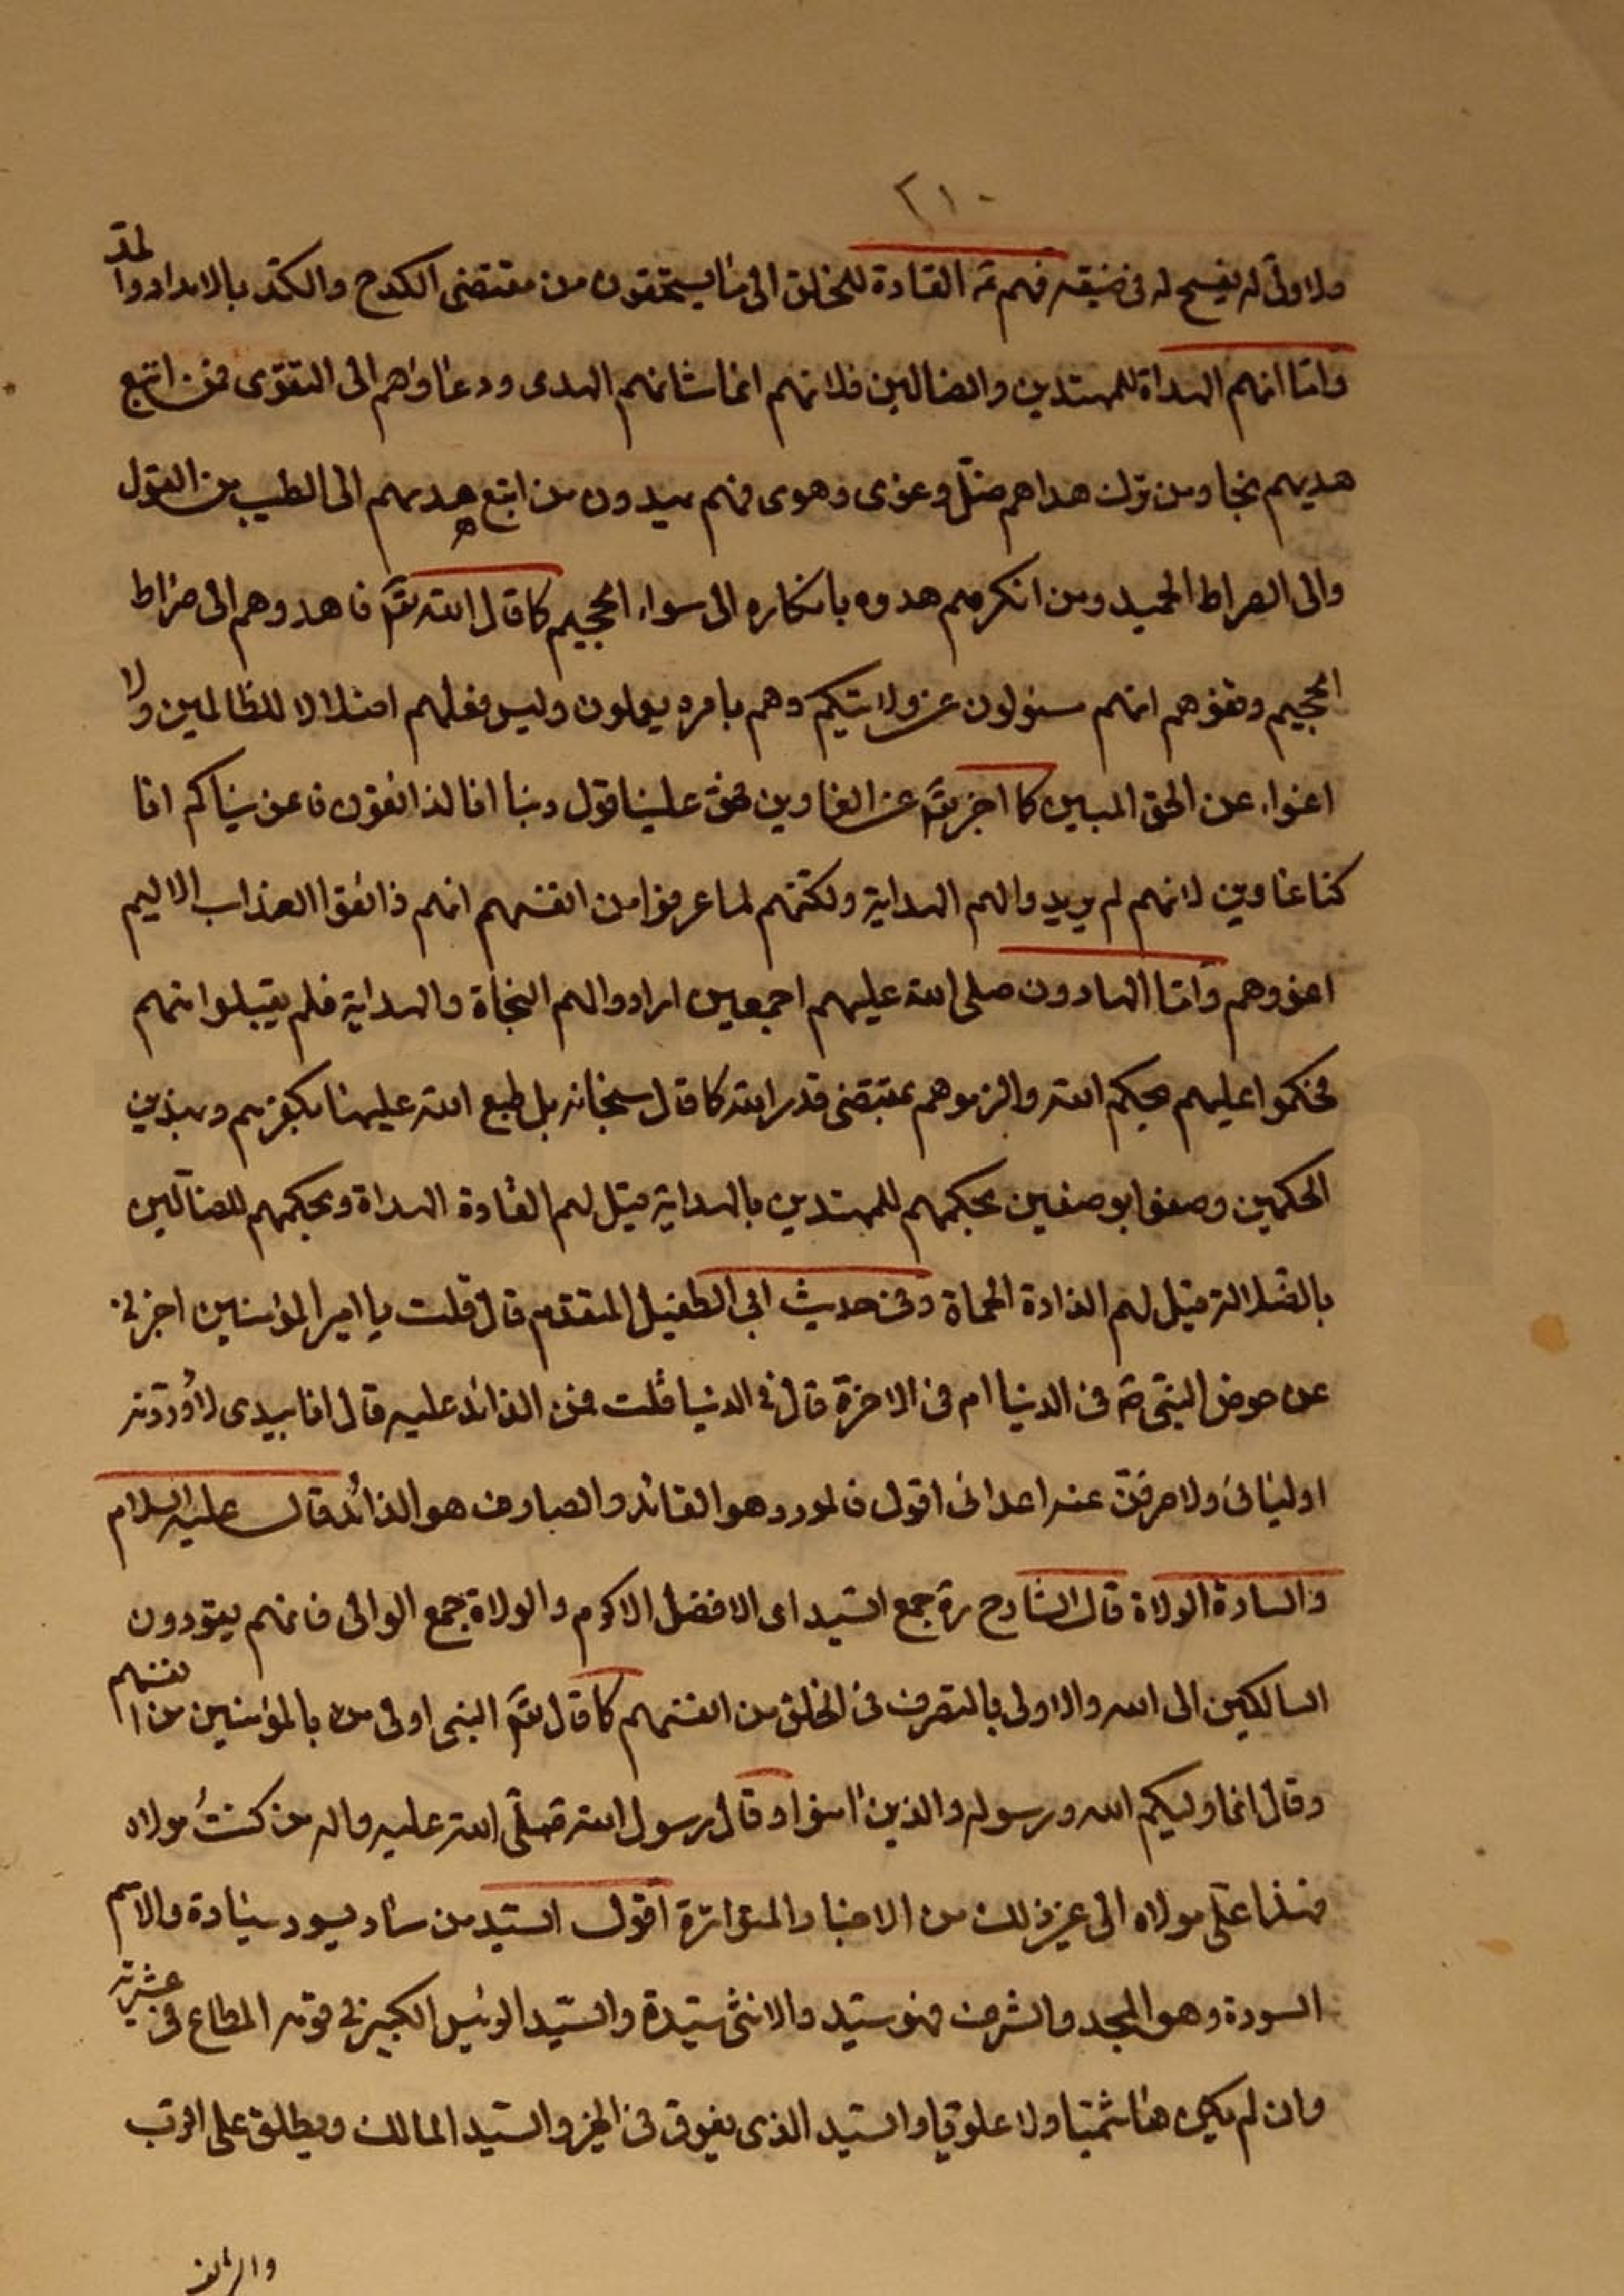 ٢١٠
ولا ولىّ له يفسح له فى ضيقه فهم ع القادة للخلق الى ما يستحقون من مقتضى الكدح والكد بالامداد والمدّ
وامّا انهم الهداة للمهتدين والضالين فلانهم انما شانهم الهدى ودعاؤاهم الى التقوى فمن اتبع
هديهم نجا ومن ترك هداهم ضلّ وغوى وهوى فهم يهدون من اتبع هديهم الى الطيب من القول
والى الصراط الحميد ومن انكرهم هدوه بانكاره الى سواء الجحيم كما قال الله تع فاهدوهم الى صراط
الجحيم وقفوهم انهم مسئولون عن ولايتكم وهم بامره يعملون وليس فعلهم اضلالا للظالمين ولا
اغواء عن الحق المبين كما اخبر تع عن الغاوين فحق علينا قول ربنا انا لذائقون فاغويناكم انا
كنا غاوين لانهم لم يريدوا لهم الهداية ولكنهم لما عرفوا من انفسهم انهم ذائقوا العذاب الاليم
اغووهم وامّا الهادون صلى الله عليهم اجمعين ارادوا لهم النجاة والهداية فلم يقبلوا منهم
فحكموا عليهم بحكم الله والزموهم بمقتضى قدر الله كما قال سبحانه بل طبع الله عليها بكفرهم وبهذين
الحكمين وصفوا بوصفين بحكمهم للمهتدين بالهداية قيل لهم القادة الهداة وبحكمهم للضالّين
بالضلالة قيل لهم الذادة الحماة وفى حديث ابى الطفيل المتقدم قال قلت يا امير المؤمنين اخبرنى
عن حوض النبىّ ص فى الدنيا ام فى الاخرة قال فى الدنيا قلت فمن الذائد عليه قال انا بيدى لاُوردنّه
اوليائى ولاصرفنّ عنه اعدائى اقول فالمورد هو القائد والصارف هو الذائد قال عليه السلام
والسادة الولاة قال الشارح ره جمع السيد اى الافضل الاكرم والولاة جمع الوالى فانهم يقودون
السالكين الى الله والاولى بالتصرف فى الخلق من انفسهم كما قال تع النبى اولى من بالمؤمنين من انفسهم
وقال انما وليكم الله ورسوله والذين امنوا وقال رسول الله صلّى الله عليه واله من كنتُ مولاه
فهذا علىّ مولاه الى غير ذلك من الاخبار المتواترة اقول السيد من ساد يسود سيادة والاسم
السودد وهو المجد والشرف فهو سيد والانثى سيّدة والسّيد الرئيس الكبير فى قومه المطاع فى عشيرته
وان لم يكن هاشميّا ولا علويّا والسيد الذى يفوق فى الخير والسيد المالك ويطلق على الرّب